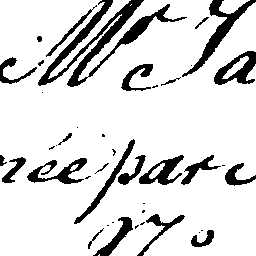 Mr Ja
née par
N°